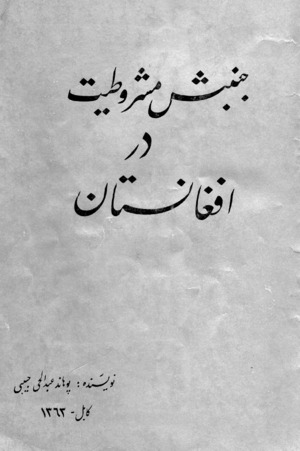 جنبش مشروطیت
در
افغانستان
نویسنده: پوهاند عبدالحی حبیبی
کابل - ۱۳۶۳